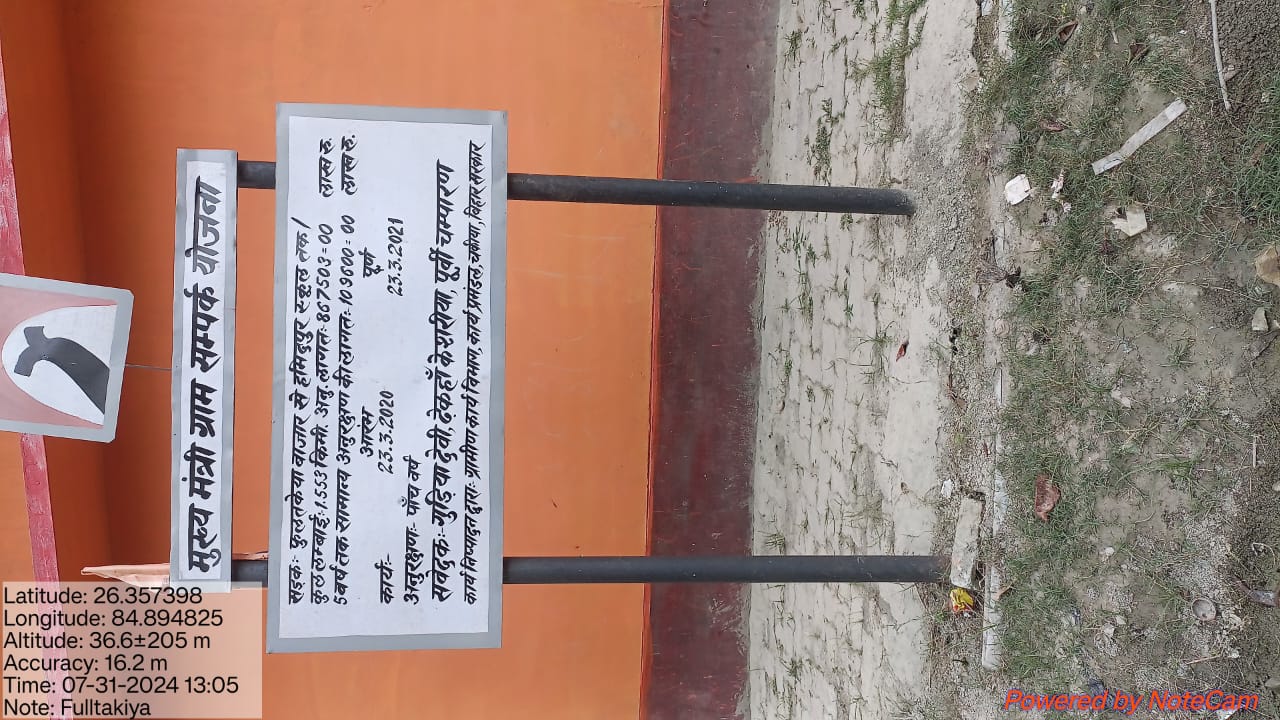 मुख्य मंत्री ग्राम सम्पर्क योजना
सड़क:- फुलतकेया बाजार से हमिदपुर स्कूल तक।
कुल लम्बाई:-1.553 किमी. अनु. लागत:- 887503=00 लाख रु.
5 वर्ष तक सामान्य अनुरक्षण की लागत:- 109600=00 लाख रु.
आरंभ पूर्ण
कार्य:- 23.3.2020 23.3.2021
अनुरक्षण:- पाँच वर्ष
संवेदक:- गुड़िया देवी, देकहाँ केसरिया, पूर्वी चम्पारण
कार्यान्वयन द्वारा:- ग्रामीण कार्य विभाग, कार्य प्रमंडल, चकिया, बिहार सरकार
Latitude: 26.357398
Longitude: 84.894825
Altitude: 36.6±205 m
Accuracy: 16.2 m
Time: 07-31-2024 13:05
Note: Fulltakiya
Powered by NoteCam